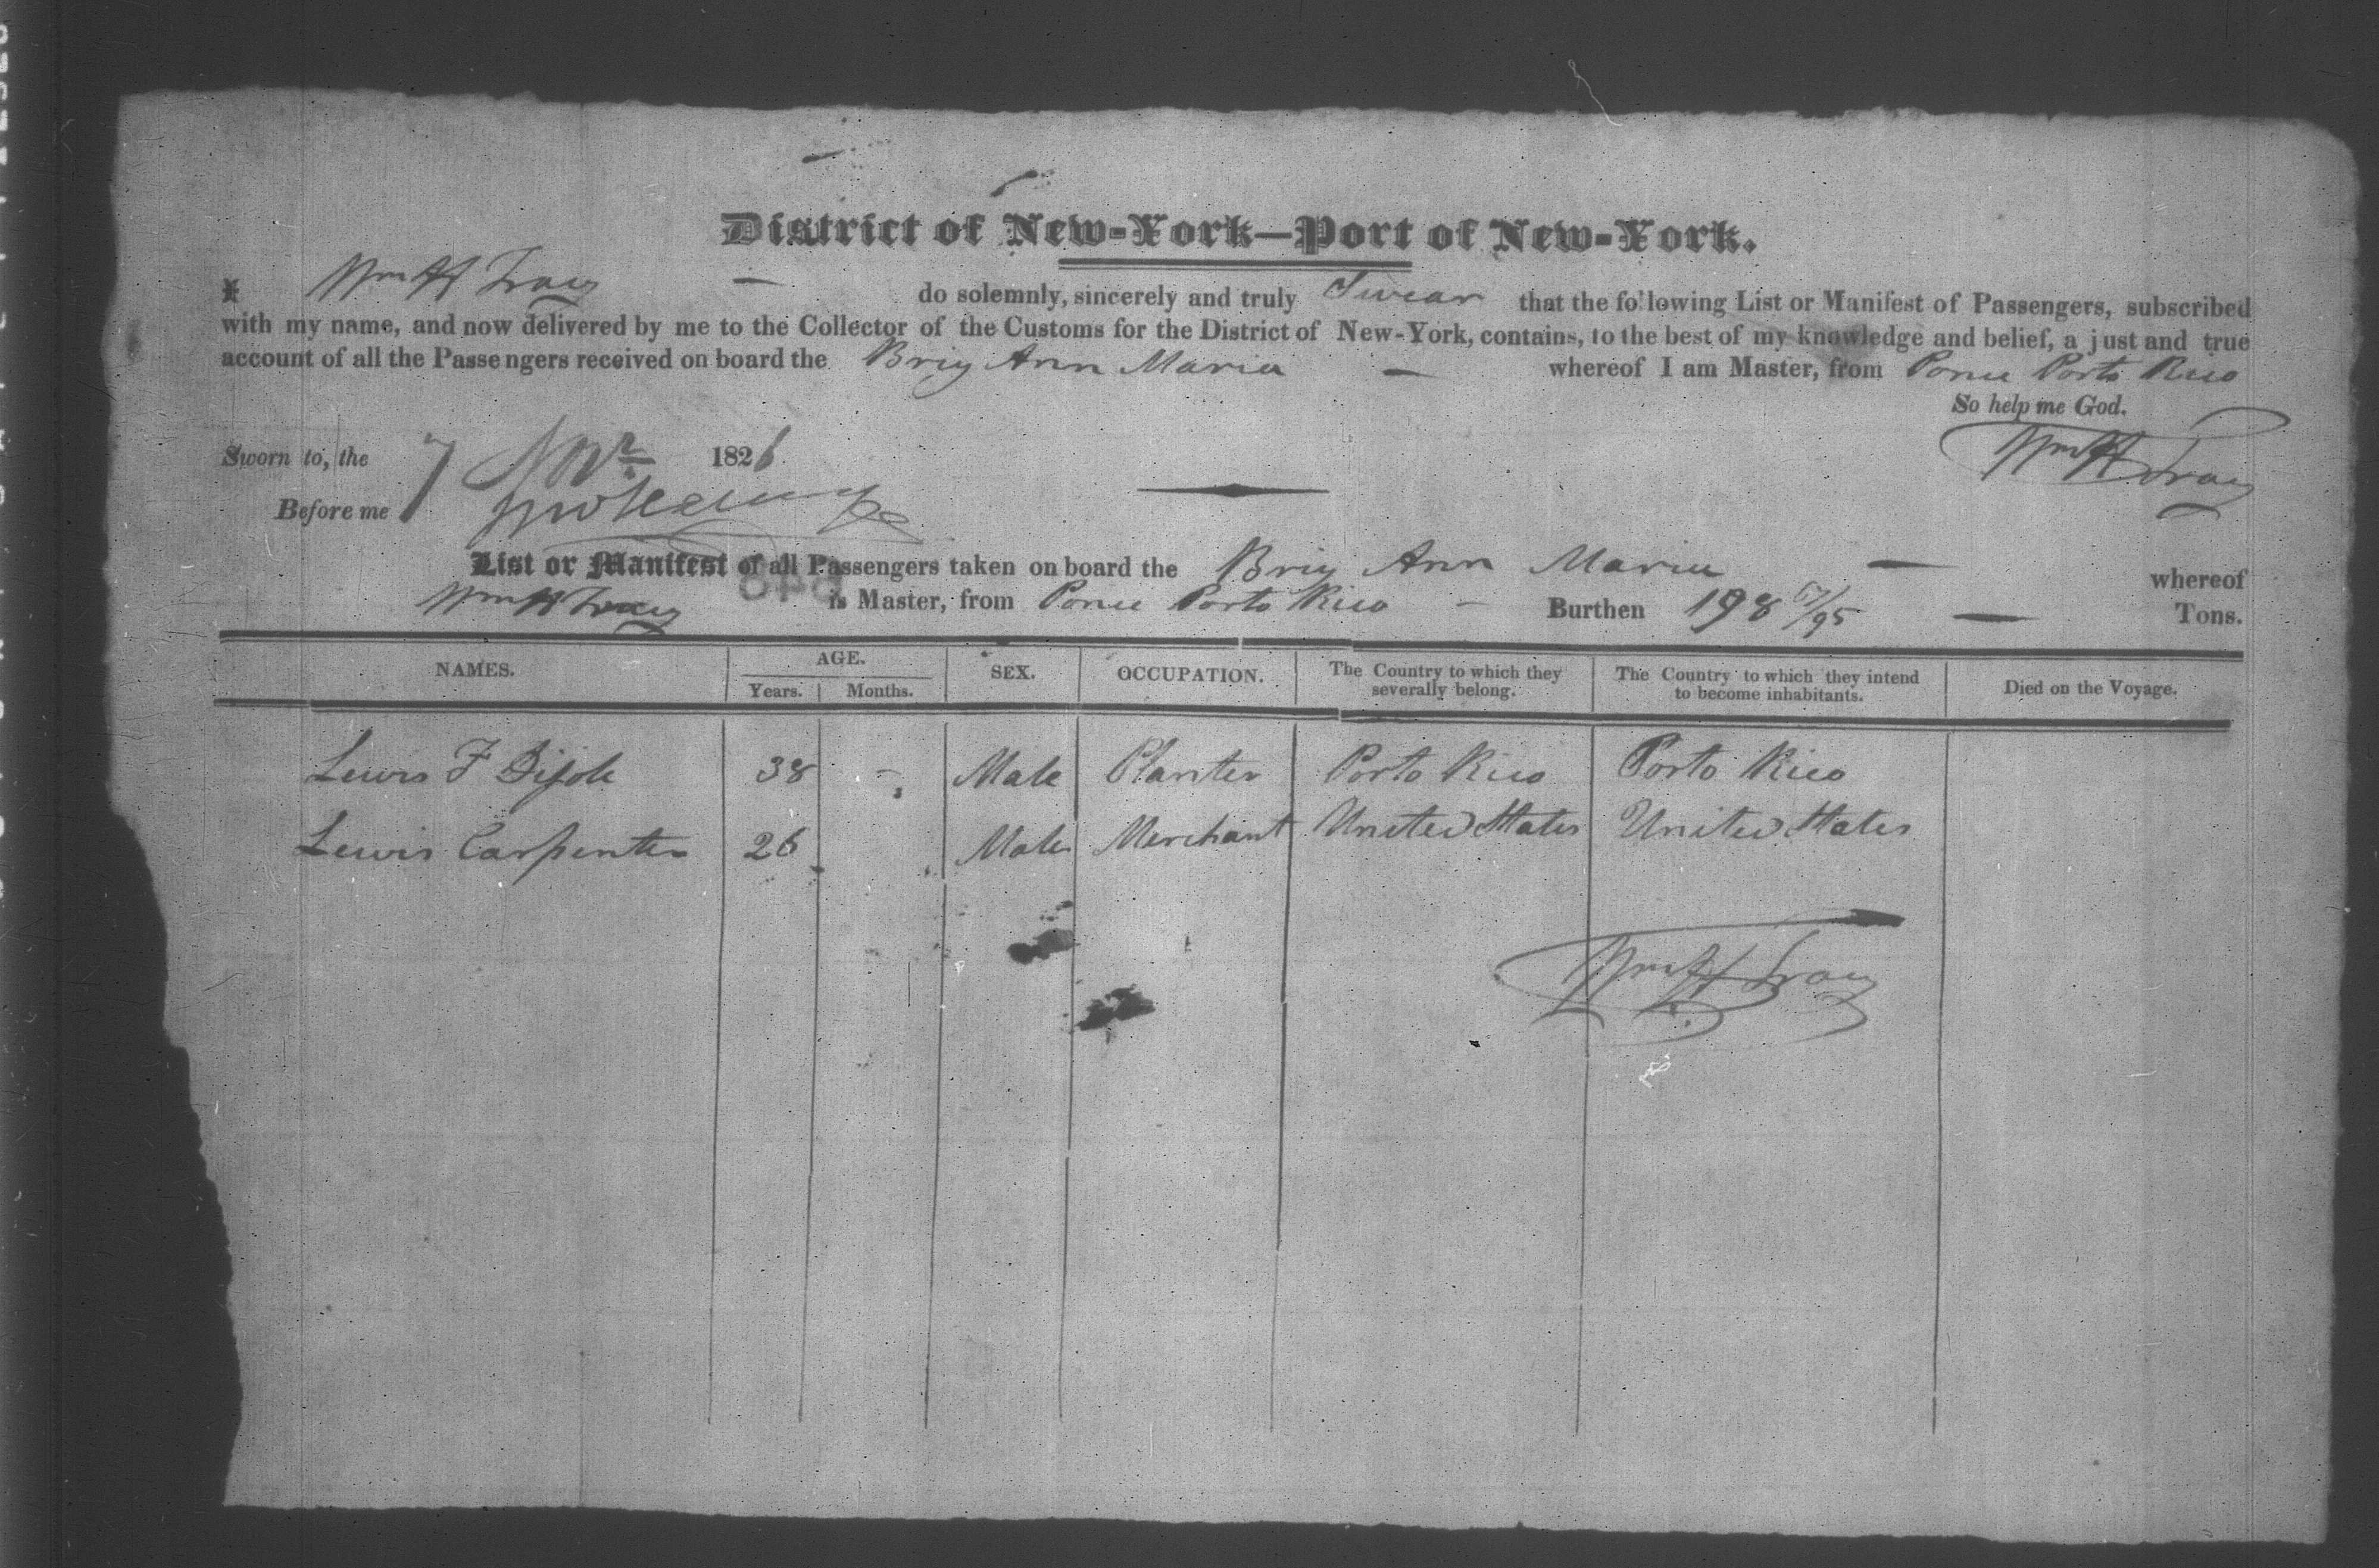 District of New-York—Port of New-York.
I Wm H Tracy — do solemnly, sincerely and truly Swear that the following List or Manifest of Passengers, subscribed
with my name, and now delivered by me to the Collector of the Customs for the District of New-York, contains, to the best of my knowledge and belief, a just and true
account of all the Passengers received on board the Brig Ann Maria — whereof I am Master, from Ponce Porto Rico
So help me God.
Sworn to, the 7 Novr 1826 Wm H Tracy
Before me
List or Manifest of all Passengers taken on board the Brig Ann Maria — whereof
Wm H Tracy is Master, from Ponce Porto Rico — Burthen 198 /95 — Tons.
NAMES. AGE. SEX. OCCUPATION. The Country to which they severally belong. The Country to which they intend to become inhabitants. Died on the Voyage.
Years. Months.
Lewis F 38 - Male Planter Porto Rico Porto Rico
Lewis Carpenter 26 Male Merchant United States United States
Wm H Tracy